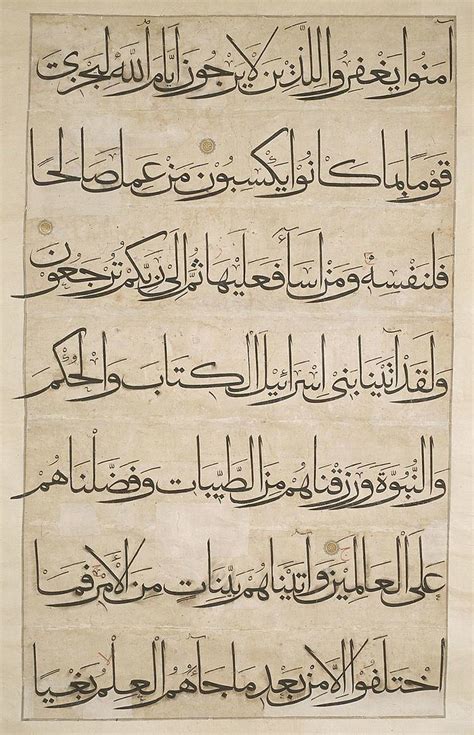 امنوا يغفروا للذين لا يرجون أيام الله ليجزي
قوما بما كانوا يكسبون من عمل صالحا
فلنفسه ومن أسآ فعليها ثم إلى ربكم ترجعون
ولقد آتينا بني اسرائيل الكتاب والحكم
والنبوة ورزقناهم من الطيبات وفضلناهم
على العالمين وآتيناهم بينات من الأمر فما
اختلفوا إلا من بعد ما جآهم العلم بغيا